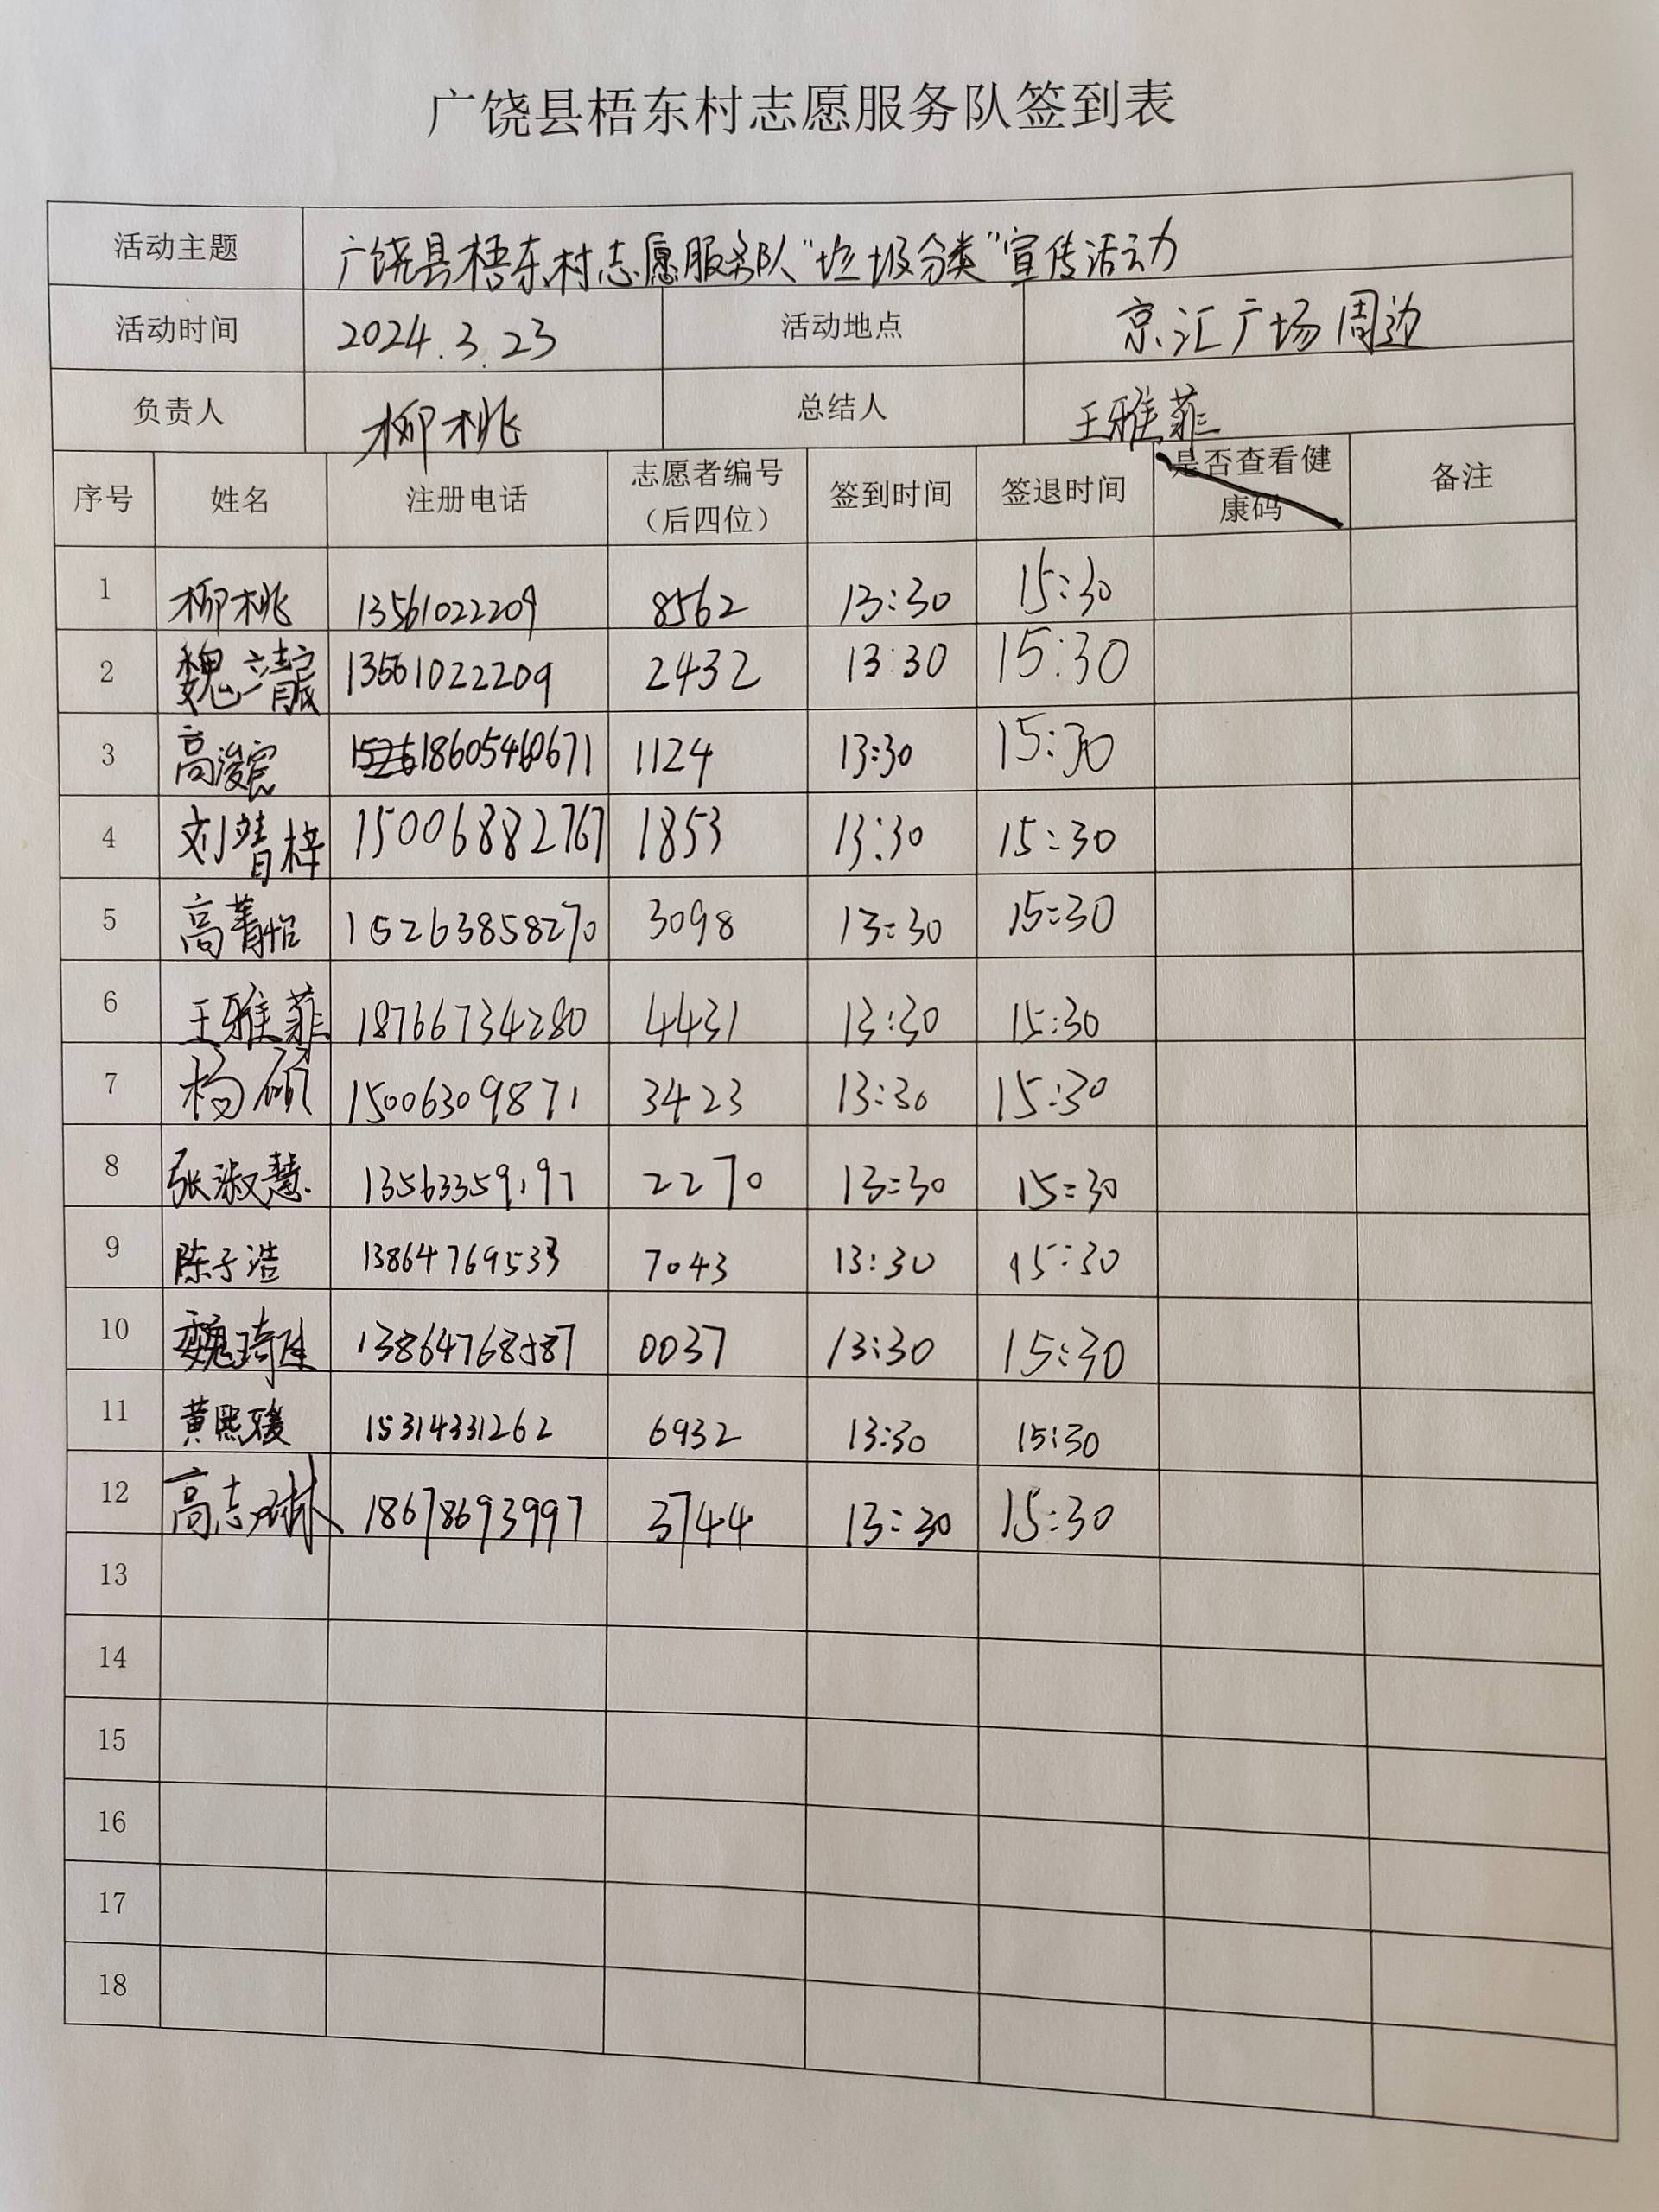 广饶县梧东村志愿服务队签到表
活动主题 广饶县梧东村志愿服务队“垃圾分类”宣传活动
活动时间 2024.3.23 活动地点 京汇广场周边
负责人 柳桃 总结人 王雅菲
序号 姓名 注册电话 志愿者编号（后四位） 签到时间 签退时间 是否查看健康码 备注
1 柳桃 13561022209 8562 13:30 15:30
2 魏 13561022209 2432 13:30 15:30
3 高浚宸 18605460671 1124 13:30 15:30
4 刘靖梓 15006882767 1853 13:30 15:30
5 高菁怡 15263858270 3098 13:30 15:30
6 王雅菲 18766734280 4431 13:30 15:30
7 杨硕 15006309871 3423 13:30 15:30
8 张淑慧 13563359197 2270 13:30 15:30
9 陈子浩 13864769533 7043 13:30 15:30
10 魏琦佳 13864768587 0037 13:30 15:30
11 黄熙媛 15314331262 6932 13:30 15:30
12 高志琳 18678693997 3744 13:30 15:30
13
14
15
16
17
18